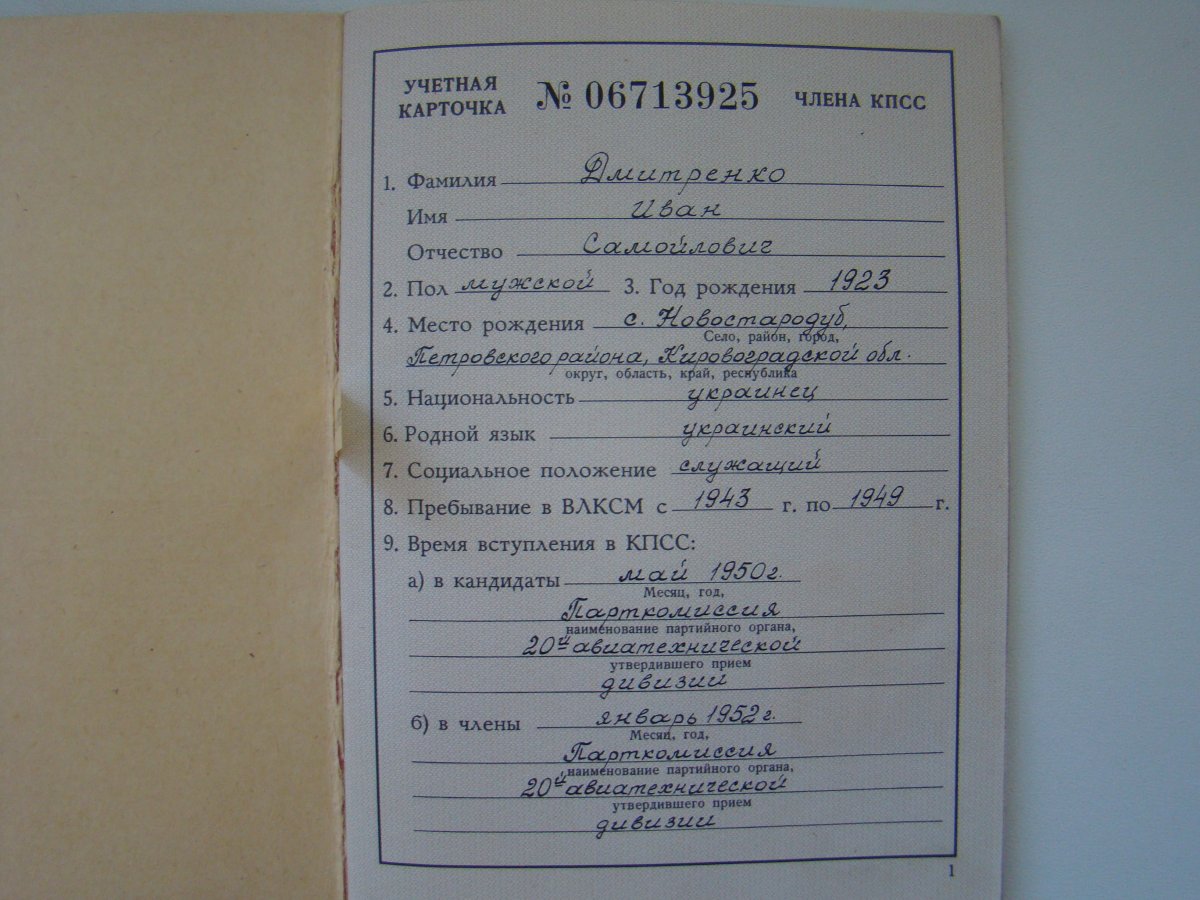 УЧЕТНАЯ КАРТОЧКА № 06713925 ЧЛЕНА КПСС
1. Фамилия Дмитренко
Имя Иван
Отчество Самойлович
2. Пол мужской 3. Год рождения 1923
4. Место рождения с. Новостародуб,
Село, район, город,
Петровского района, Кировоградской обл.
округ, область, край, республика
5. Национальность украинец
6. Родной язык украинский
7. Социальное положение служащий
8. Пребывание в ВЛКСМ с 1943 г. по 1949 г.
9. Время вступления в КПСС:
а) в кандидаты май 1950 г.
Месяц, год,
Парткомиссия
наименование партийного органа,
20й авиатехнической
утвердившего прием
дивизии
б) в члены январь 1952 г.
Месяц, год,
Парткомиссия
наименование партийного органа,
20й авиатехнической
утвердившего прием
дивизии
1